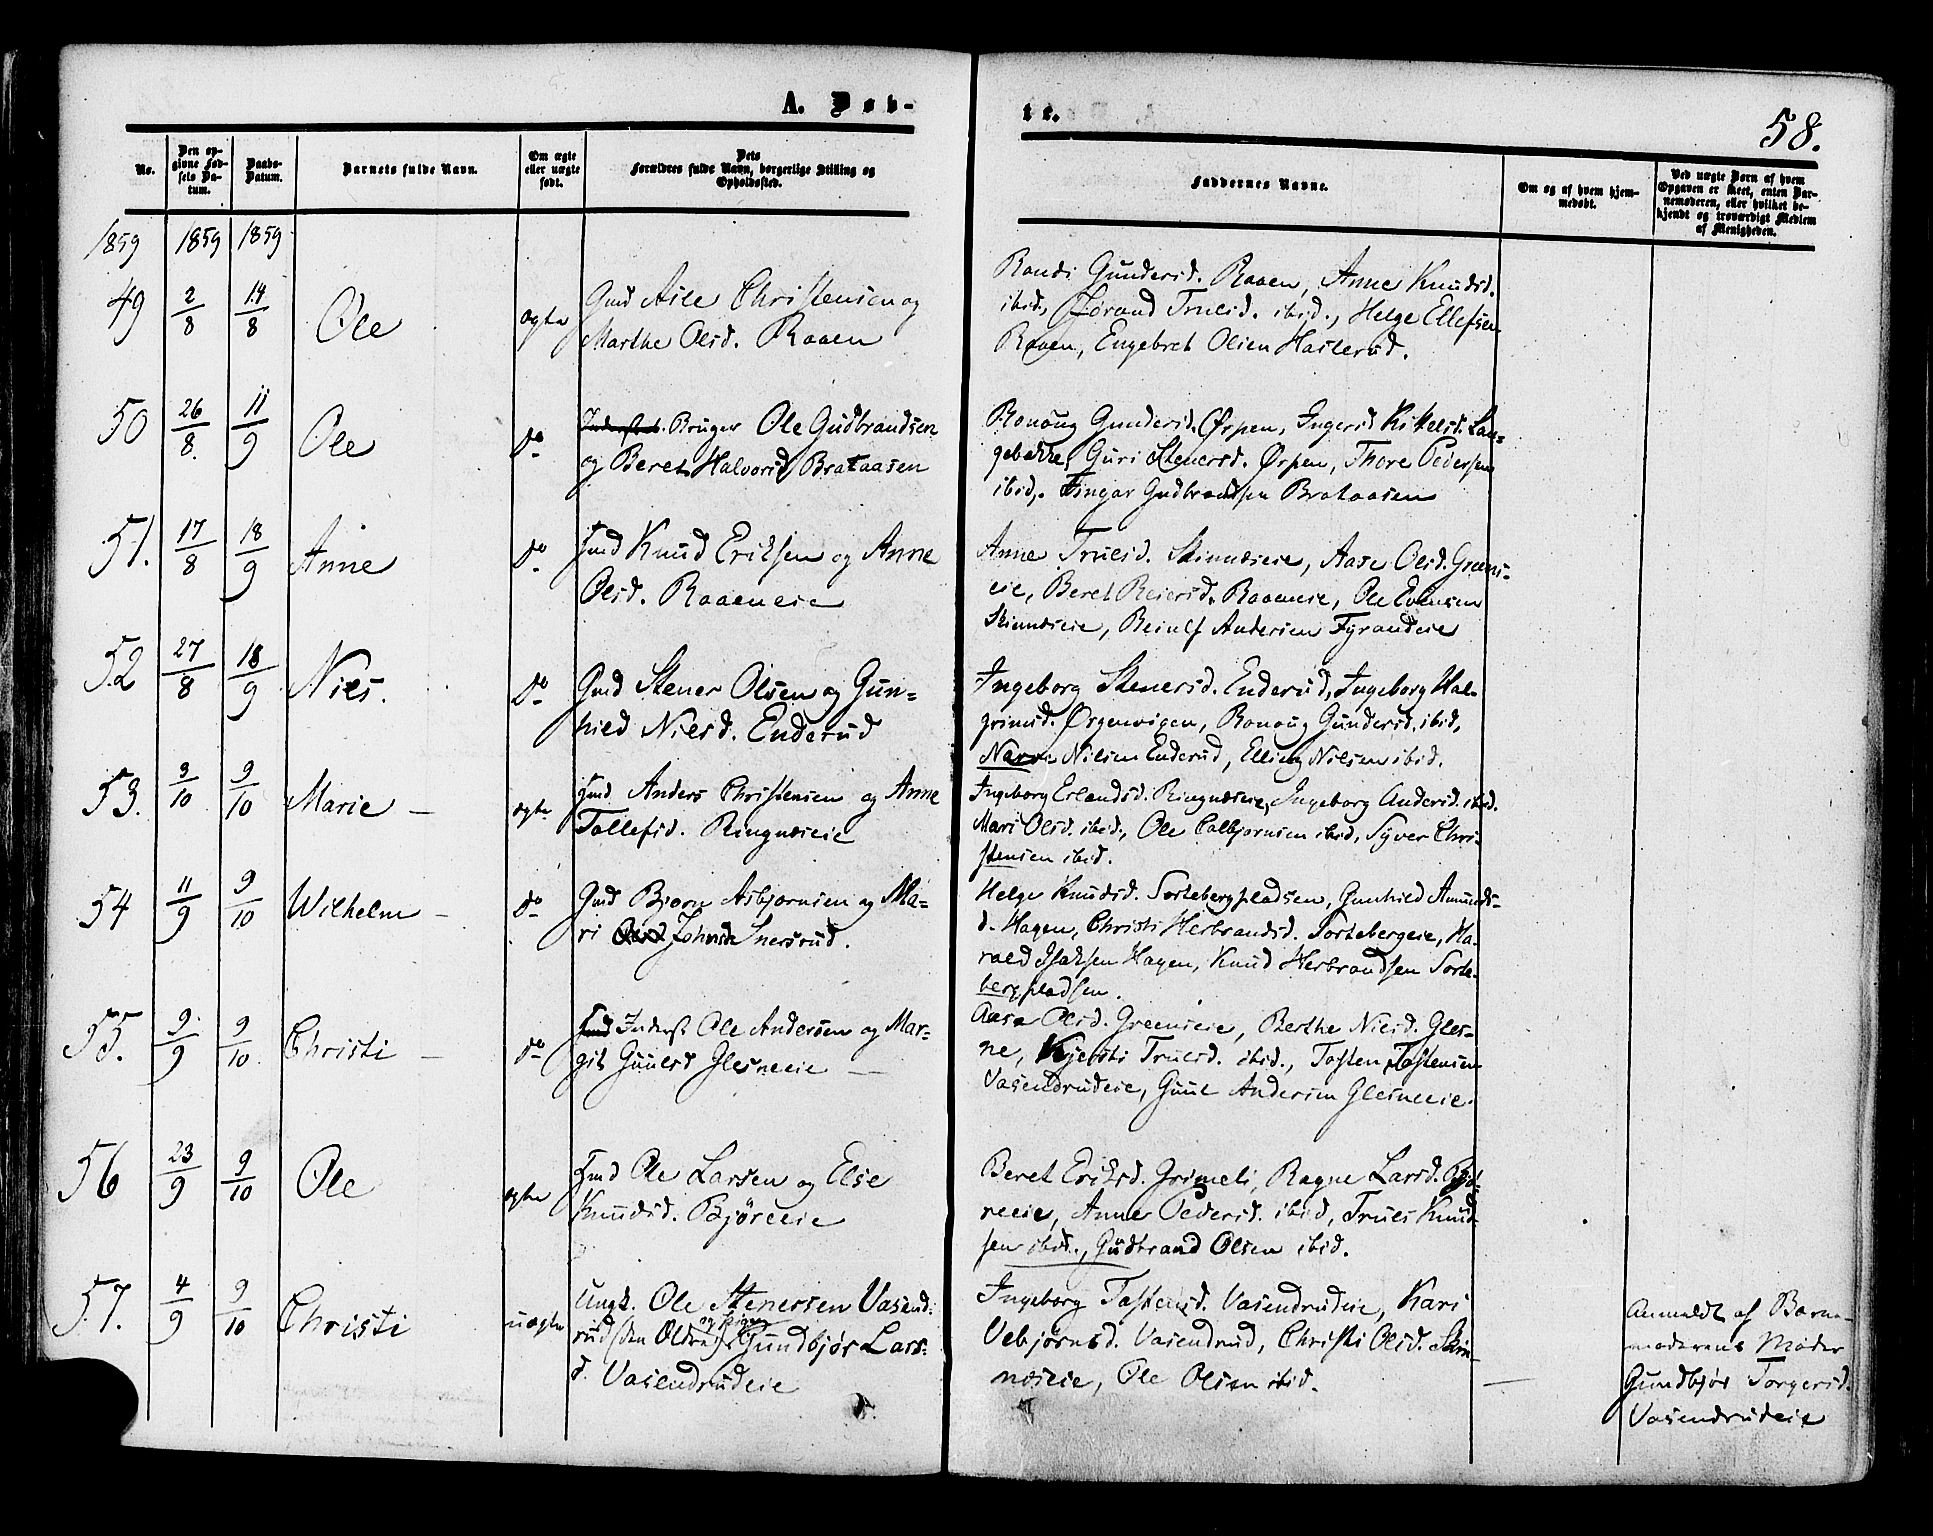 A. Døb-
te.
58.
No.
Den op-
givne Fød-
sels Da-
tum.
Daabs-
Datum.
Barnets fulde Navn.
Om ægte
eller uægte
født.
Dets
Forældres fulde Navn, borgerlige Stilling og
Opholdssted.
Faddernes Navne.
Om og af hvem hjem-
medøbt.
Ved uægte Børn af hvem
Opgaven er skeet, enten Bar-
nemoderen, eller hvilket be-
kjendt og troværdigt Medlem
af Menigheden.
1859 1859 1859
49 2/8 14/8 Ole ægte
Gmd Asle Christensen og
Marthe Olsd. Raaen
Randi Gundersd. Raaen, Anne Knudsd.
ibid, Jørand Trulsd. ibid., Helge Ellefsen
Raaen, Engebret Olsen Haslerud.
50 26/8 11/9 Ole do
Bruger Ole Gudbrandsen
og Beret Halvorsd Brataasen
Ronoug Gundersd. Ørpen, Ingerid Kikelsd. Lan-
gebakke, Guri Stenersd. Ørpen, Thore Pedersen
ibid, Fingar Gudbrandsen Brataasen
51. 17/8 18/9 Anne do
Hmd Knud Eriksen og Anne
Olsd. Raaeneie
Anne Trulsd. Skinneseie, Aase Olsd. Grøns-
eie, Beret Reiersd. Raaeneie, Ole Evensen
Skinneseie, Beinulf Andersen Fyrandeie
52 27/8 18/9 Niels. do
Gmd Stener Olsen og Gun-
hild Nielsd. Enderud
Ingeborg Stenersd. Enderud, Ingeborg Hal-
grimsd. Ørgenvigen, Ronoug Gundersd. ibid,
Narve Nilsen Enderud, Elling Nilsen ibid.
53. 3/10 9/10 Marie – ægte
Hmd Anders Christensen og Anne
Tollefsd. Ringneseie
Ingeborg Erlandsd. Ringneseie, Ingeborg Andersd. ibid.
Mari Olsd. ibid., Ole Colbjørnsen ibid, Syver Chri-
stensen ibid.
54 11/9 9/10 Wilhelm – do
Gmd Bjørn Asbjørnsen og Ma-
ri Johnsd Snersrud.
Helge Knudsd. Sortebergpladsen, Gunhild Amunds-
d. Hagen, Christi Herbrandsd. Sortebergeie, Ha-
rald Isaksen Hagen, Knud Herbrandsen Sorte-
bergpladsen.
55. 9/9 9/10 Christi – do
Inderst Ole Andersen og Mar-
git Guulsd Glesneeie –
Aase Olsd. Grønseie, Berthe Nielsd. Gles-
ne, Kjersti Trulsd. ibid., Tosten Tostensen
Vasendrudeie, Guul Andersen Glesneeie.
56 23/9 9/10 Ole ægte
Hmd Ole Larsen og Else
Knudsd. Bjøreeie
Beret Eriksd. Grimeli, Ragne Larsd. Bjø-
reeie, Anne Pedersd. ibid, Truls Knud-
sen ibid., Gudbrand Olsen ibid.
57. 4/9 9/10 Christi uægte
Ungk. Ole Stenersen Vasend-
rud (den Ældre) og Pigen Gundbjør Lars-
d. Vasendrudeie
Ingeborg Tostensd. Vasendrudeie, Kari
Vebjørnsd. Vasendrud, Christi Olsd. Skin-
neseie, Ole Olsen ibid.
–
Anmeldt af Barne-
moderens Moder
Gundbjør Torgersd.
Vasendrudeie